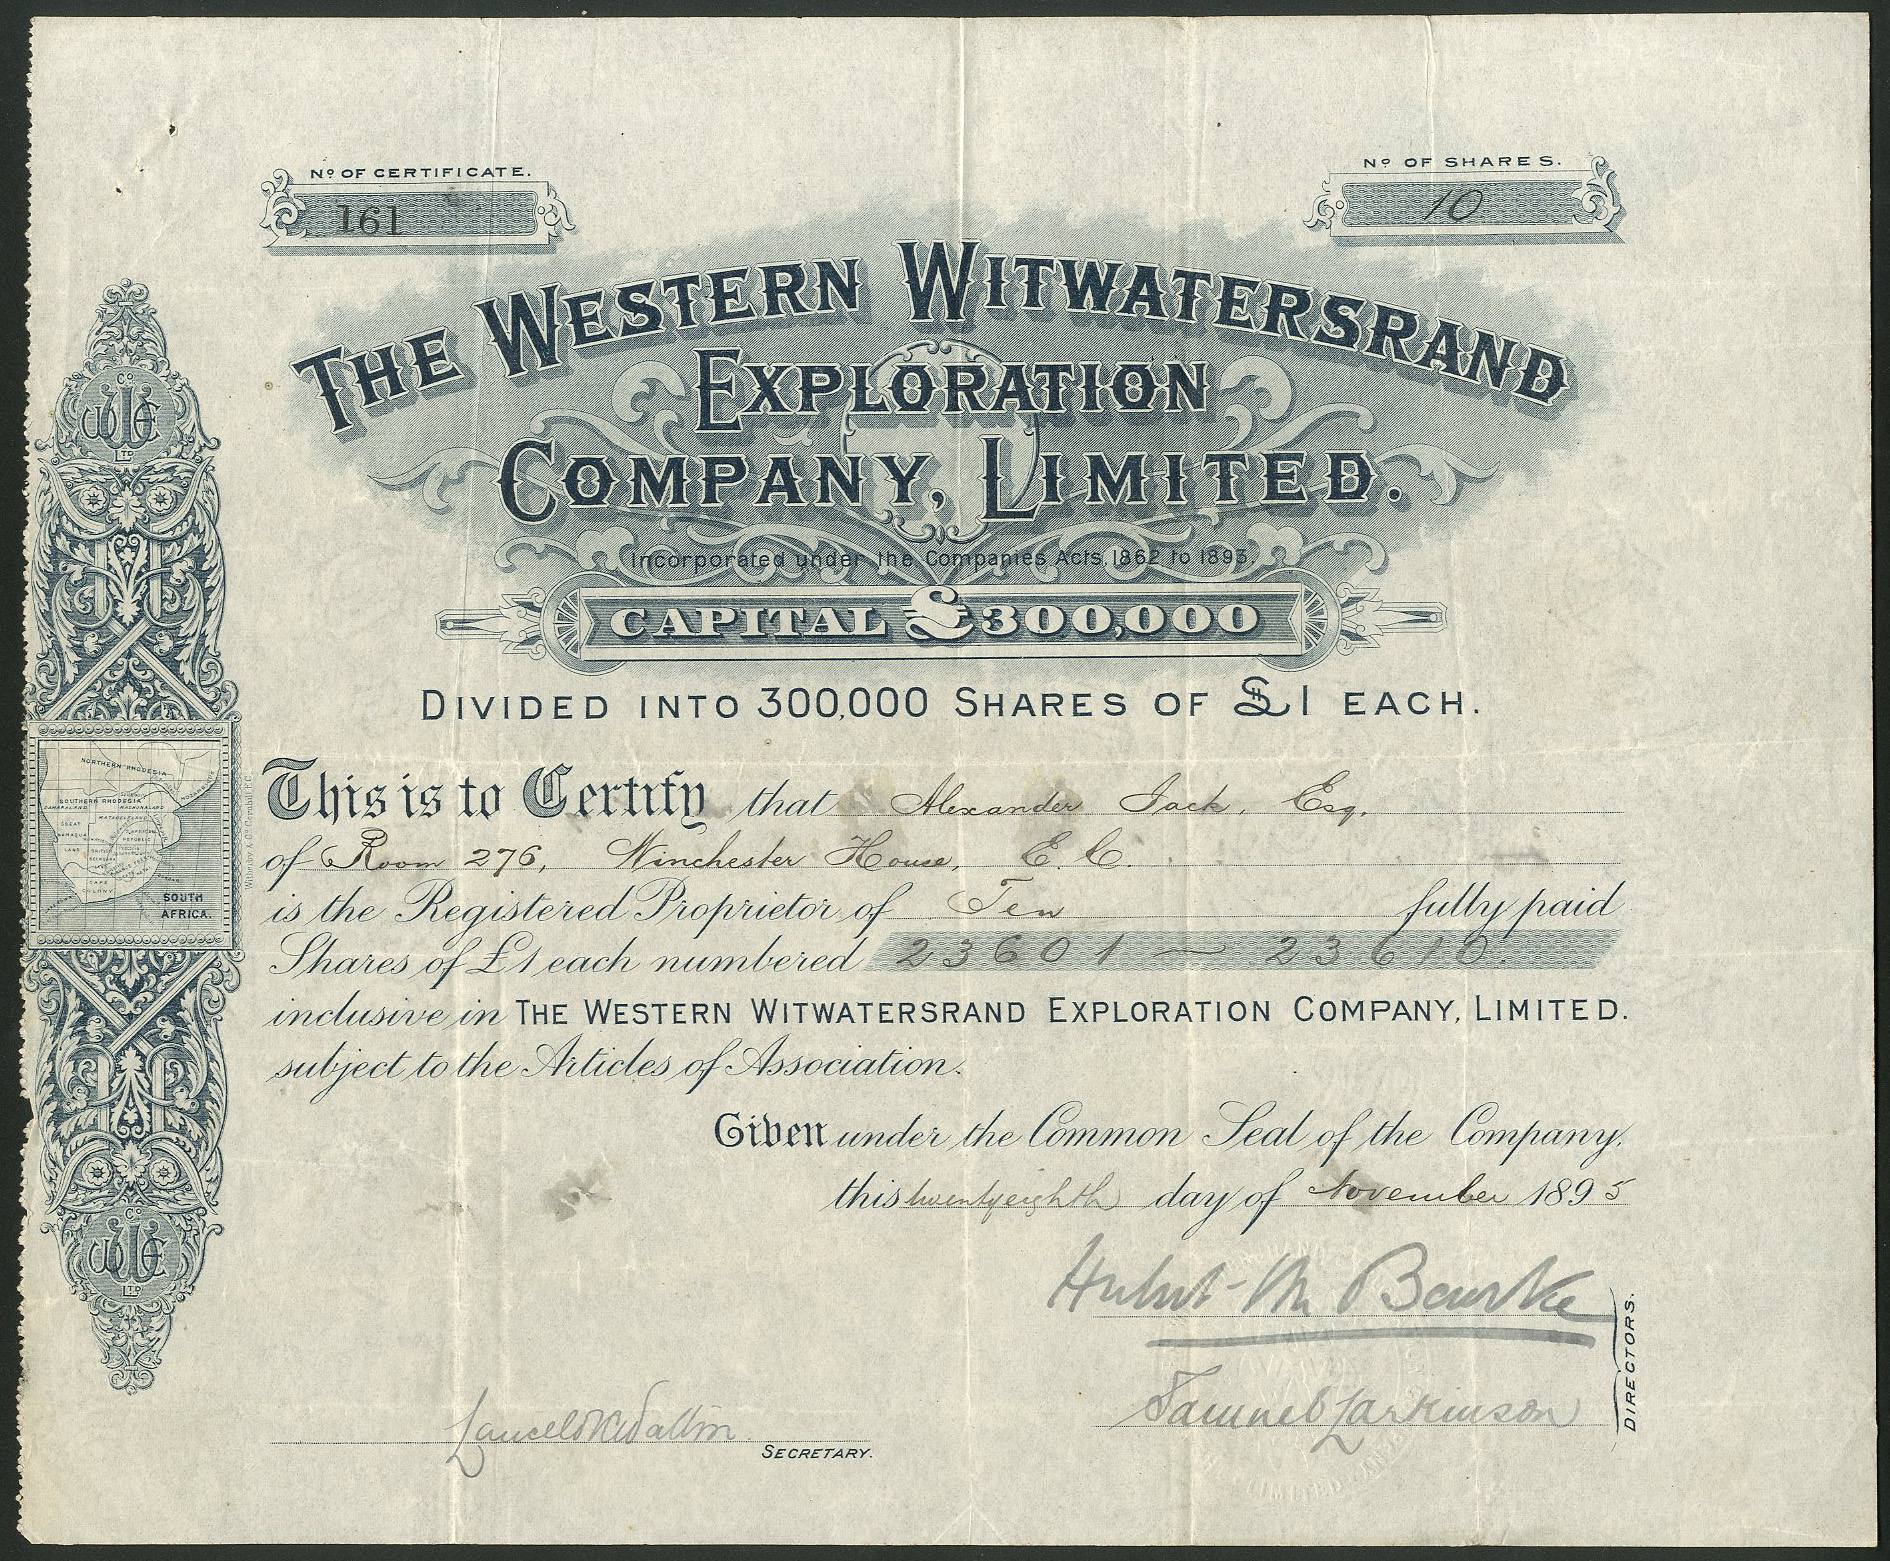 Nº OF CERTIFICATE.
161
Nº OF SHARES.
10
THE WESTERN WITWATERSRAND
EXPLORATION
COMPANY, LIMITED.
Incorporated under the Companies Acts, 1862 to 1893.
CAPITAL £300,000
DIVIDED INTO 300,000 SHARES OF £1 EACH.
This is to Certify that Alexander Jack, Esq.
of Room 276, Winchester House, E.C.
is the Registered Proprietor of Ten fully paid
Shares of £1 each numbered 23601 ~ 23610.
inclusive in THE WESTERN WITWATERSRAND EXPLORATION COMPANY, LIMITED.
subject to the Articles of Association.
Given under the Common Seal of the Company,
this twentyeighth day of November 1895
Hubert M Bourke
Samuel Larkinson
DIRECTORS.
SECRETARY.
Cº
LTD
NORTHERN RHODESIA
SOUTHERN RHODESIA
DAMARALAND
MASHONALAND
MATABELELAND
GREAT
NAMAQUA
LAND
BRITISH
CAPE
COLONY
SOUTH
AFRICA.
Cº
LTD